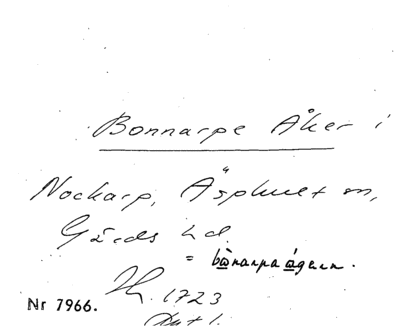 Bonnarpe Åker i
Nockarp, Äsphult sn,
Gärds hd.
= bònarpa ágern.
Nr 7966.
1723